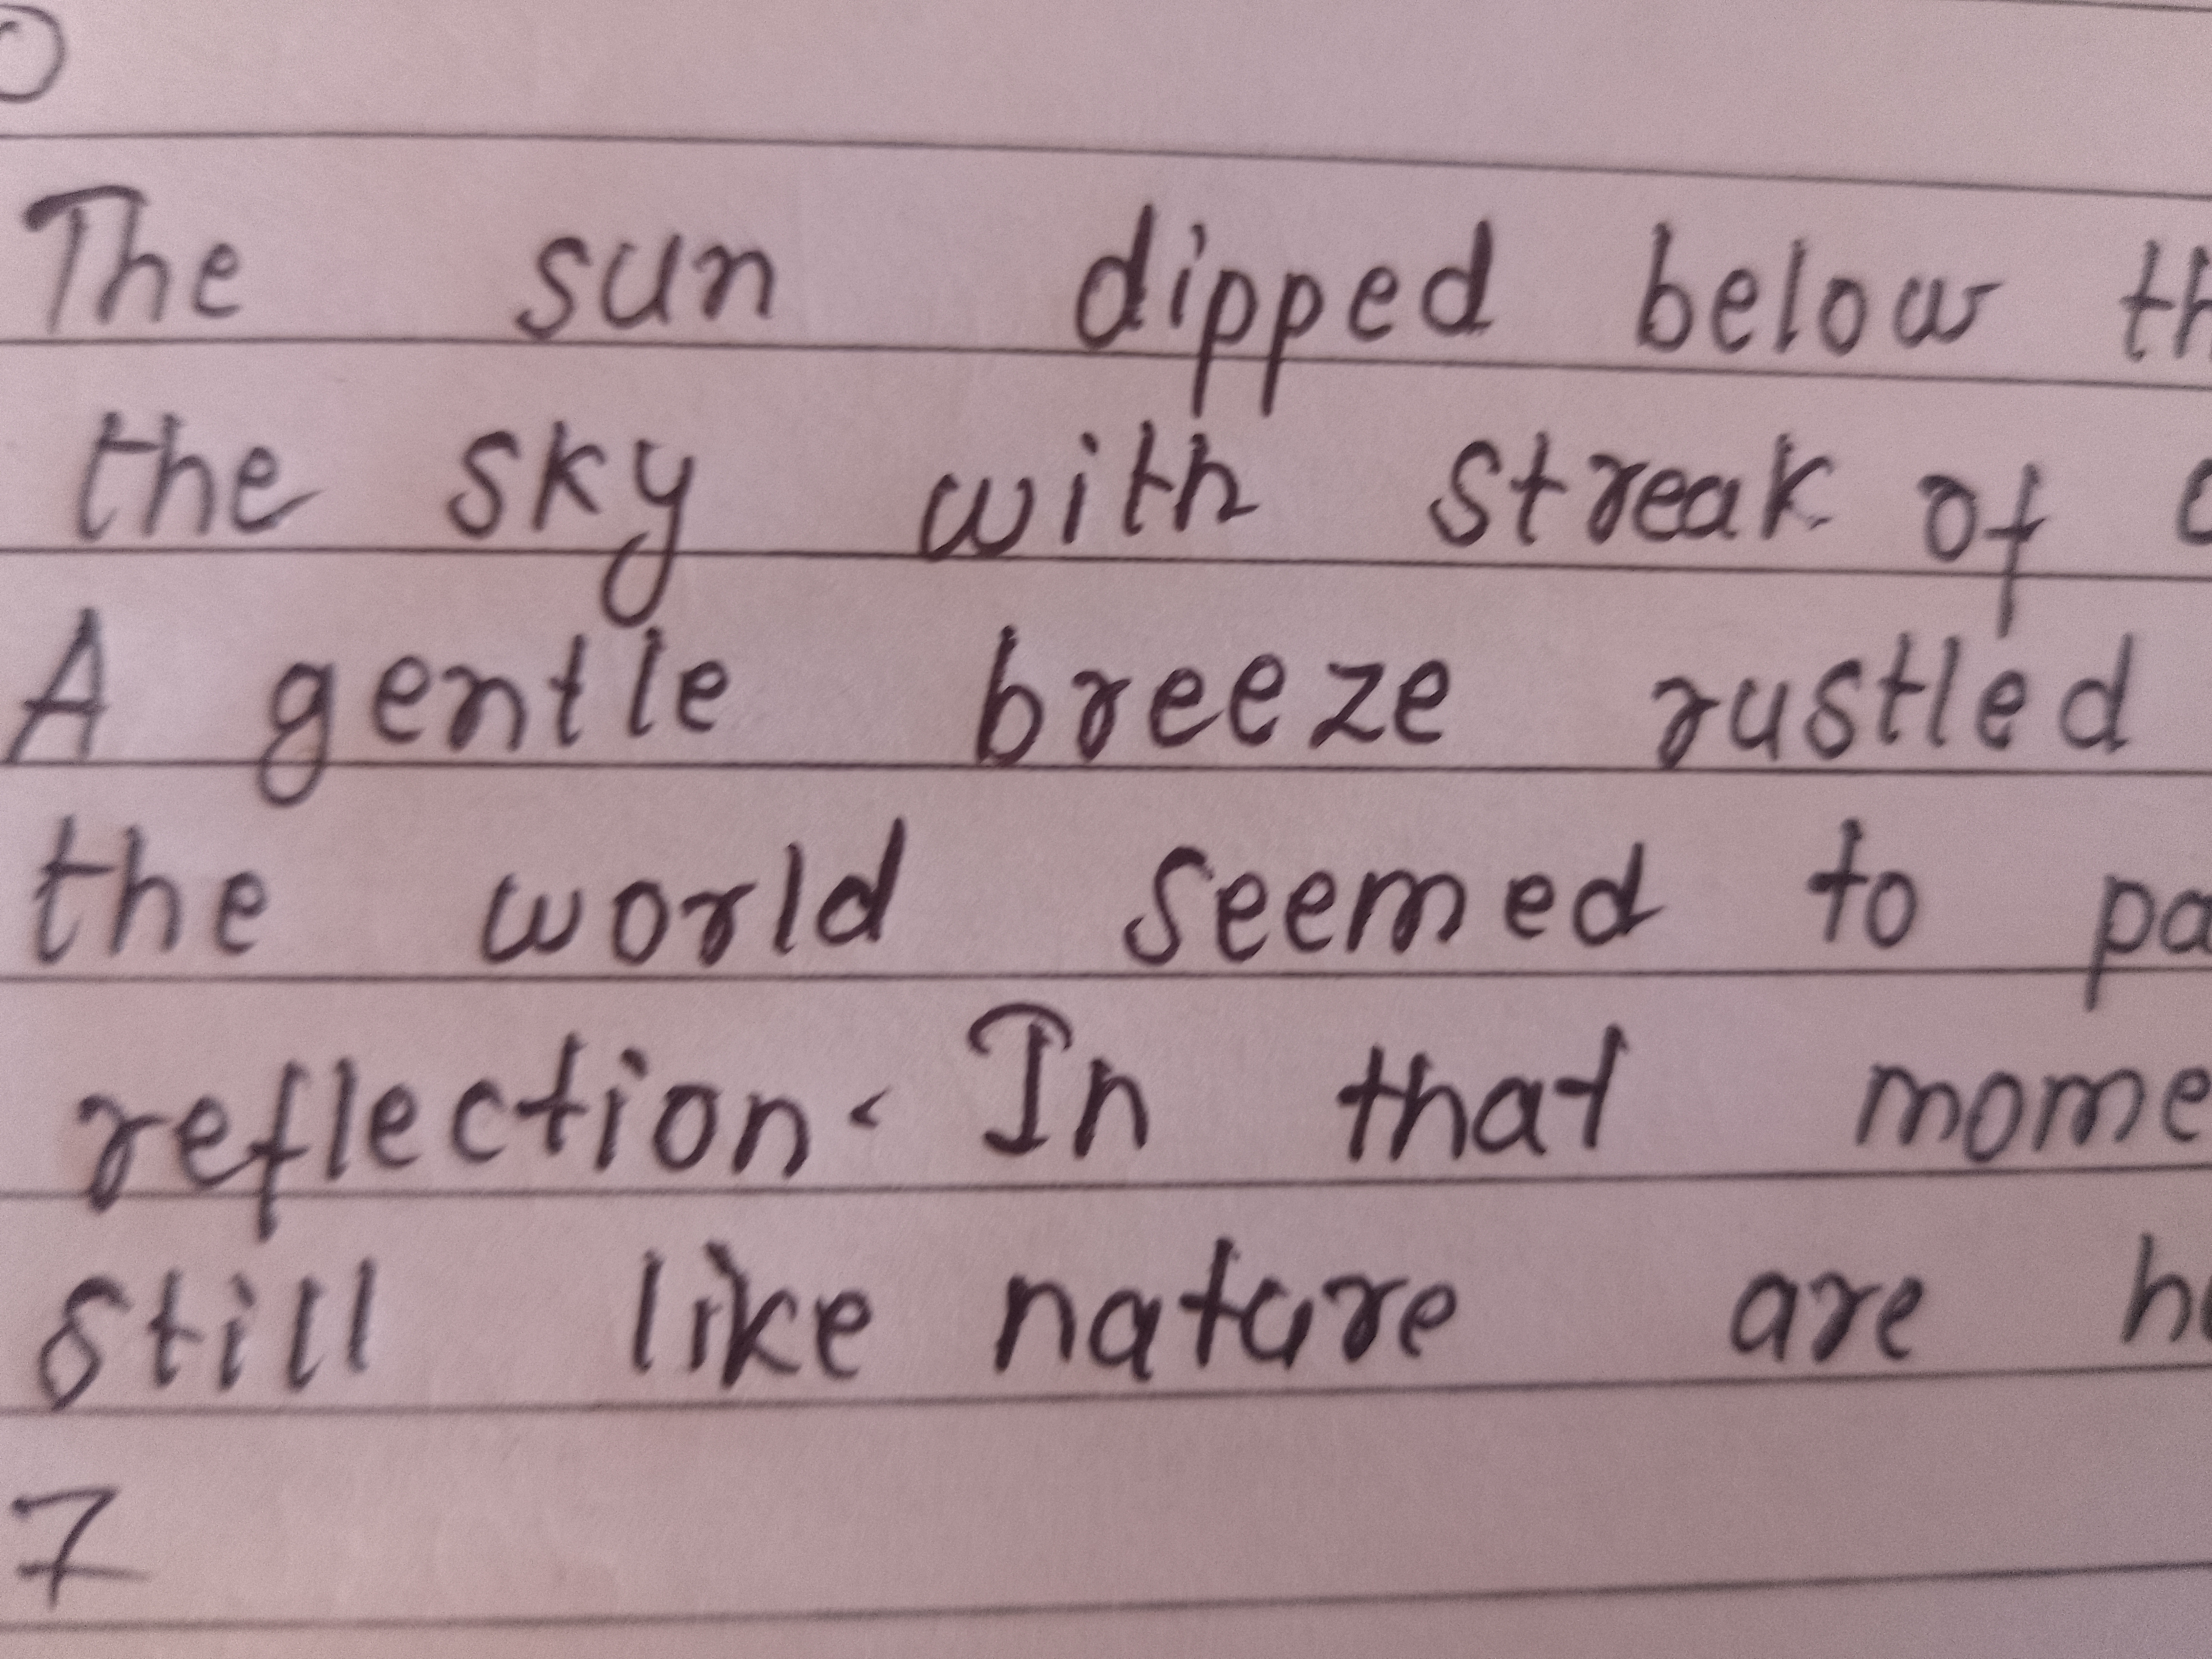 The sun dipped below
the sky with streak of
A gentle breeze rustled
the world seemed to
reflection. In that
still like nature are
7